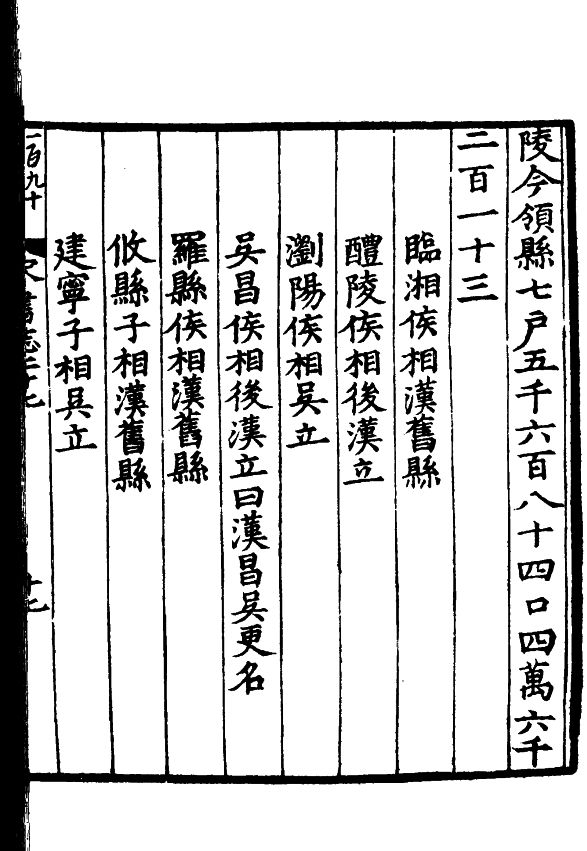 陵今領縣七户五千六百八十四口四萬六千
二百一十三
臨湘侯相漢舊縣
醴陵侯相後漢立
瀏陽侯相吳立
吳昌侯相後漢立曰漢昌吳更名
羅縣侯相漢舊縣
攸縣子相漢舊縣
建寧子相吳立
一百九十
書志二十七
十七